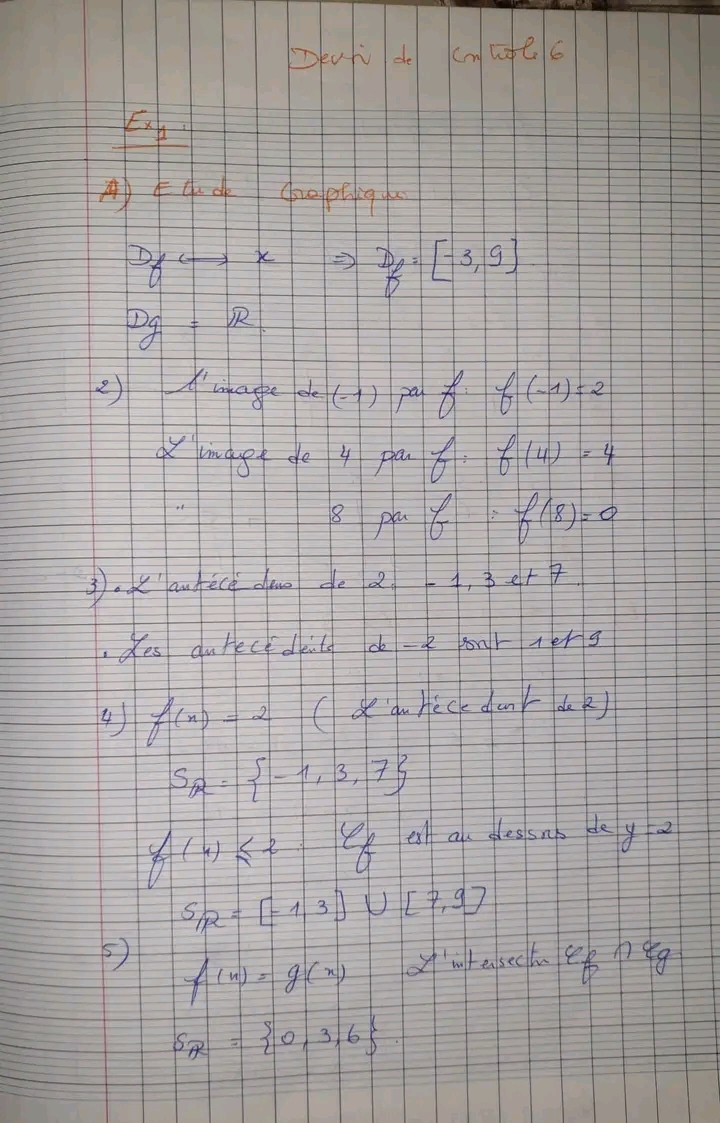 Devoir de Contrôle 6
Ex1 :
A) Etude Graphique
Df ⟷ x ⇒ Df = [-3, 9]
Dg = ℝ.
2) L'image de (-1) par f : f(-1) = 2
L'image de 4 par f : f(4) = 4
" 8 par f : f(8) = 0
3) • L'antécédens de 2. -1, 3 et 7.
• Les antecédents de -2 sont 1 et 9
4) f(x) = 2 ( L'antécedant de 2)
Sℝ = {-1, 3, 7}
f(x) ≤ 2 : Cf est au dessous de y = 2
Sℝ = [-1, 3] ∪ [7, 9]
5)
f(x) = g(x) L'intersectn Cf ∩ Cg
Sℝ = {0, 3, 6}.